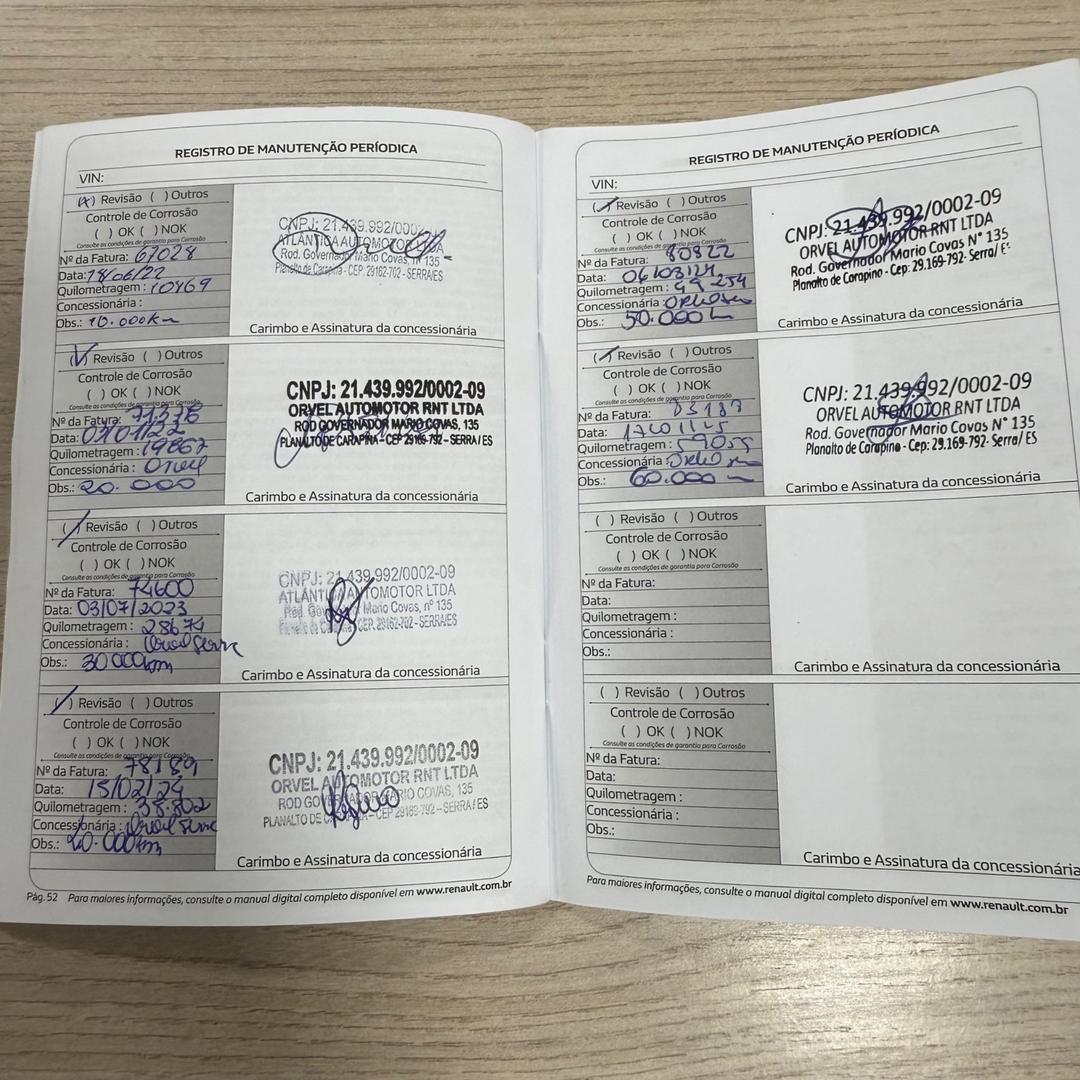 REGISTRO DE MANUTENÇÃO PERÍODICA
VIN:
(X) Revisão ( ) Outros
Controle de Corrosão
( ) OK ( ) NOK
Consulte as condições de garantia para Corrosão
Nº da Fatura: 67028
Data: 18/06/22
Quilometragem: 10469
Concessionária :
Obs.: 10.000Km
CNPJ: 21.439.992/0002
ATLÂNTICA AUTOMOTOR LTDA
Rod. Governador Mario Covas, nº 135
Planalto de Carapina - CEP: 29162-702 - SERRA/ES
Carimbo e Assinatura da concessionária
(V) Revisão ( ) Outros
Controle de Corrosão
( ) OK ( ) NOK
Consulte as condições de garantia para Corrosão
Nº da Fatura:
Data:
Quilometragem: 19867
Concessionária : Orvel
Obs.: 20.000
CNPJ: 21.439.992/0002-09
ORVEL AUTOMOTOR RNT LTDA
ROD GOVERNADOR MARIO COVAS, 135
PLANALTO DE CARAPINA - CEP 29169-792 - SERRA / ES
Carimbo e Assinatura da concessionária
(/) Revisão ( ) Outros
Controle de Corrosão
( ) OK ( ) NOK
Consulte as condições de garantia para Corrosão
Nº da Fatura: 74600
Data: 03/07/2023
Quilometragem : 28671
Concessionária : Orvel Serra
Obs.: 30000km
CNPJ: 21.439.992/0002-09
ATLÂNTICA AUTOMOTOR LTDA
Rod. Governador Mario Covas, nº 135
Planalto de Carapina - CEP: 29162-702 - SERRA/ES
Carimbo e Assinatura da concessionária
(/) Revisão ( ) Outros
Controle de Corrosão
( ) OK ( ) NOK
Consulte as condições de garantia para Corrosão
Nº da Fatura: 78189
Data: 15/02/24
Quilometragem : 38.802
Concessionária : Orvel Serra
Obs.: 40.000km
CNPJ: 21.439.992/0002-09
ORVEL AUTOMOTOR RNT LTDA
ROD GOVERNADOR MARIO COVAS, 135
PLANALTO DE CARAPINA - CEP 29169-792 - SERRA / ES
Carimbo e Assinatura da concessionária
Pág. 52 Para maiores informações, consulte o manual digital completo disponível em www.renault.com.br
REGISTRO DE MANUTENÇÃO PERÍODICA
VIN:
(/) Revisão ( ) Outros
Controle de Corrosão
( ) OK ( ) NOK
Consulte as condições de garantia para Corrosão
Nº da Fatura: 80822
Data: 06/03/24
Quilometragem : 49254
Concessionária :
Obs.: 50.000
CNPJ: 21.439.992/0002-09
ORVEL AUTOMOTOR RNT LTDA
Rod. Governador Mario Covas N° 135
Planalto de Carapino - Cep: 29.169-792- Serra/ E
Carimbo e Assinatura da concessionária
(/) Revisão ( ) Outros
Controle de Corrosão
( ) OK ( ) NOK
Consulte as condições de garantia para Corrosão
Nº da Fatura:
Data:
Quilometragem : 59055
Concessionária :
Obs.: 60.000
CNPJ: 21.439.992/0002-09
ORVEL AUTOMOTOR RNT LTDA
Rod. Governador Mario Covas N° 135
Planalto de Carapino - Cep: 29.169-792- Serra/ ES
Carimbo e Assinatura da concessionária
( ) Revisão ( ) Outros
Controle de Corrosão
( ) OK ( ) NOK
Consulte as condições de garantia para Corrosão
Nº da Fatura:
Data:
Quilometragem :
Concessionária :
Obs.:
Carimbo e Assinatura da concessionária
( ) Revisão ( ) Outros
Controle de Corrosão
( ) OK ( ) NOK
Consulte as condições de garantia para Corrosão
Nº da Fatura:
Data:
Quilometragem :
Concessionária :
Obs.:
Carimbo e Assinatura da concessionária
Para maiores informações, consulte o manual digital completo disponível em www.renault.com.br